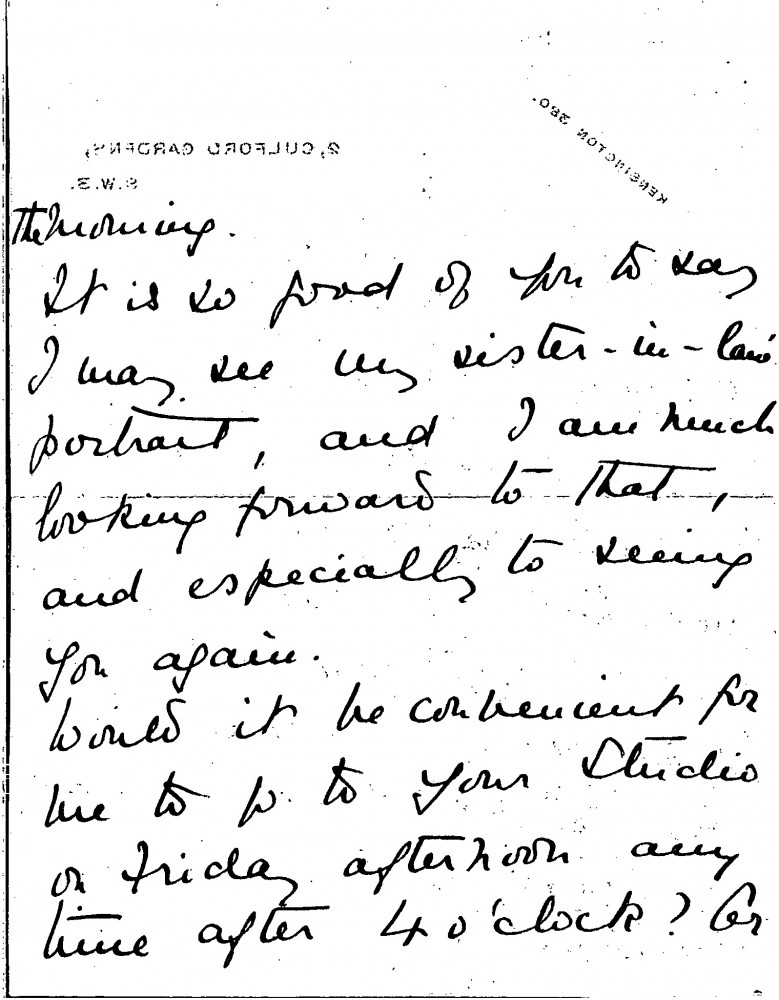 KENSINGTON 380.
2, CULFORD GARDENS,
S.W.3.
the morning.
It is so good of you to say
I may see my sister-in-law's
portrait, and I am much
looking forward to that,
and especially to seeing
you again.
Would it be convenient for
me to go to your Studio
on Friday afternoon any
time after 4 o'clock? Or